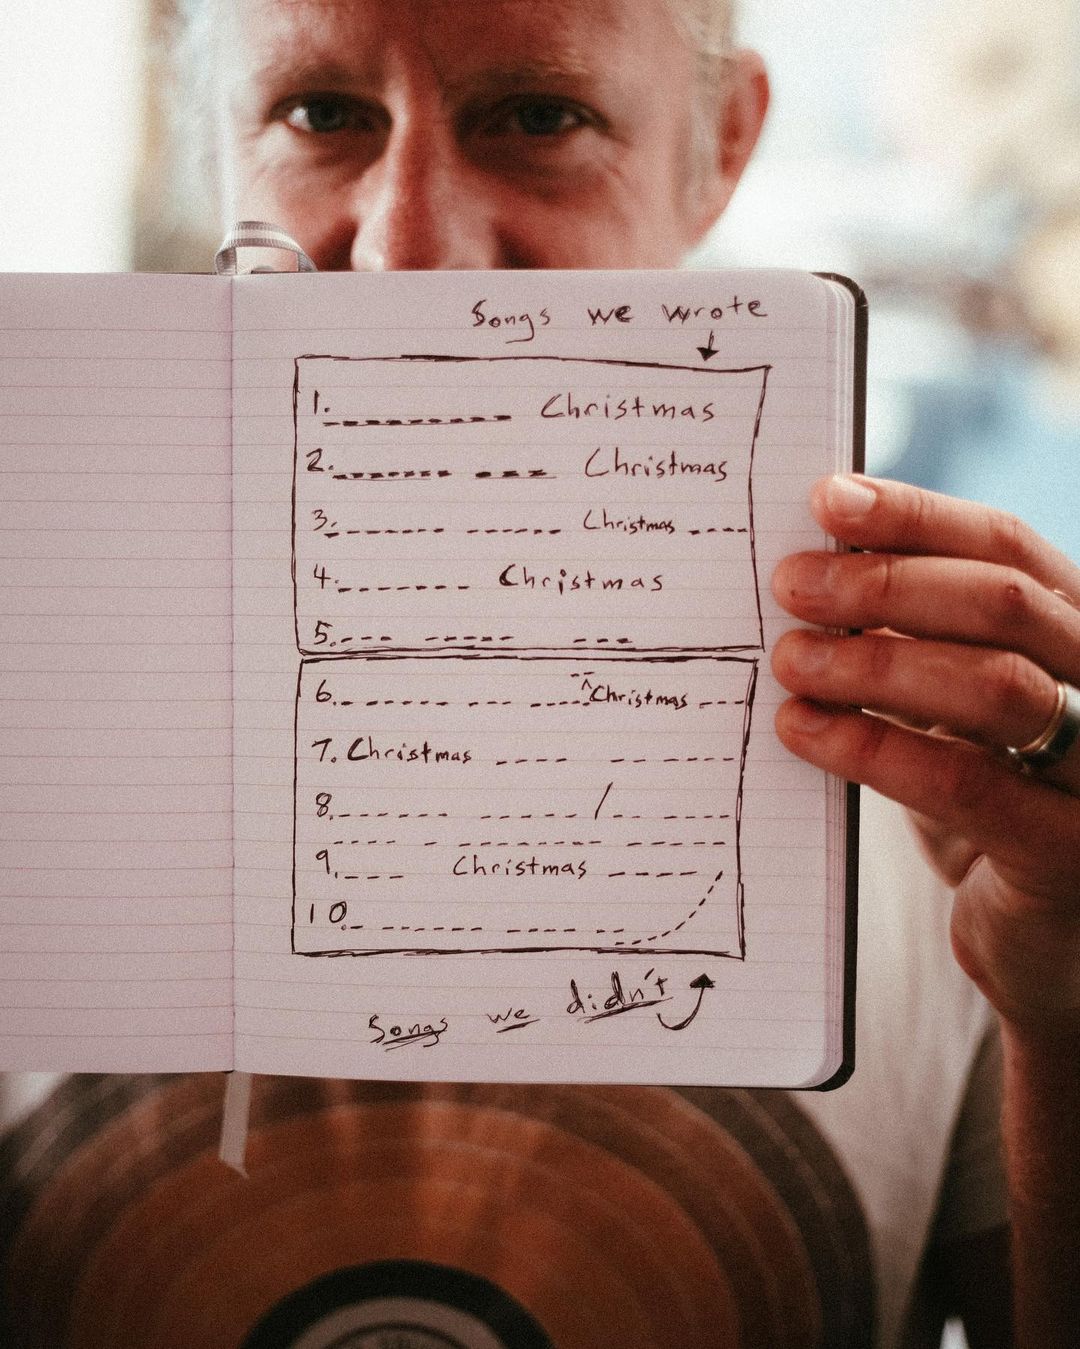 Songs we wrote
1. Christmas
2. Christmas
3. Christmas
4. Christmas
5.
6. Christmas
7. Christmas
8. /
9. Christmas
10.
Songs we didn't